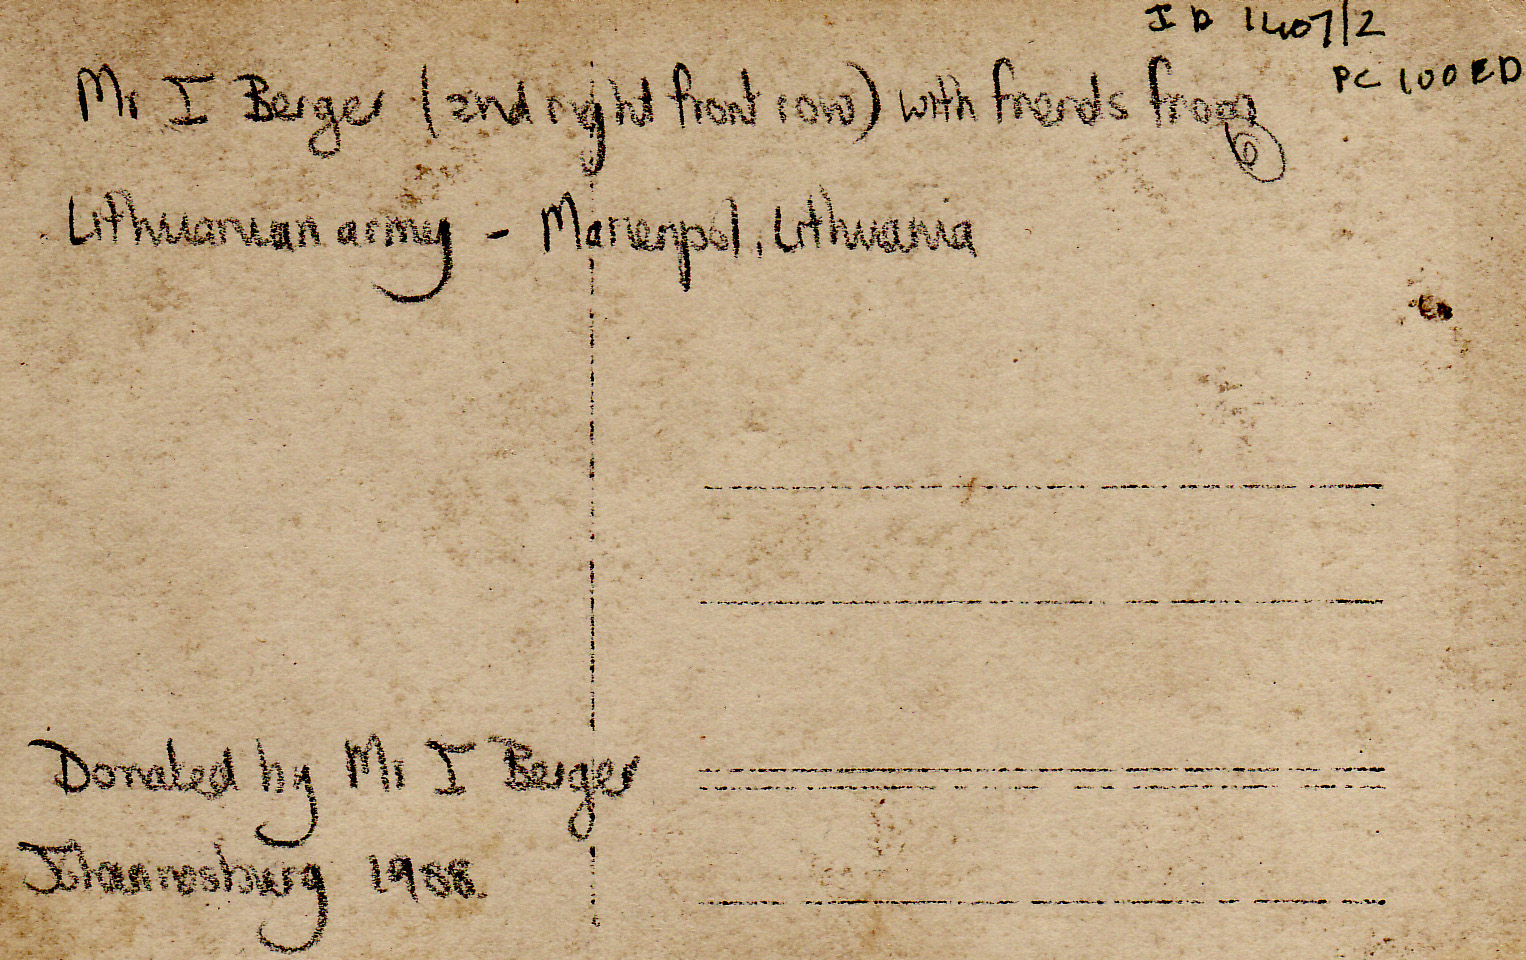 JD 1407/2
PC 100 ED
Mr I Berger (2nd right front row) with friends from
Lithuanian army - Marienpol, Lithuania
Donated by Mr I Berger
Johannesburg 1988